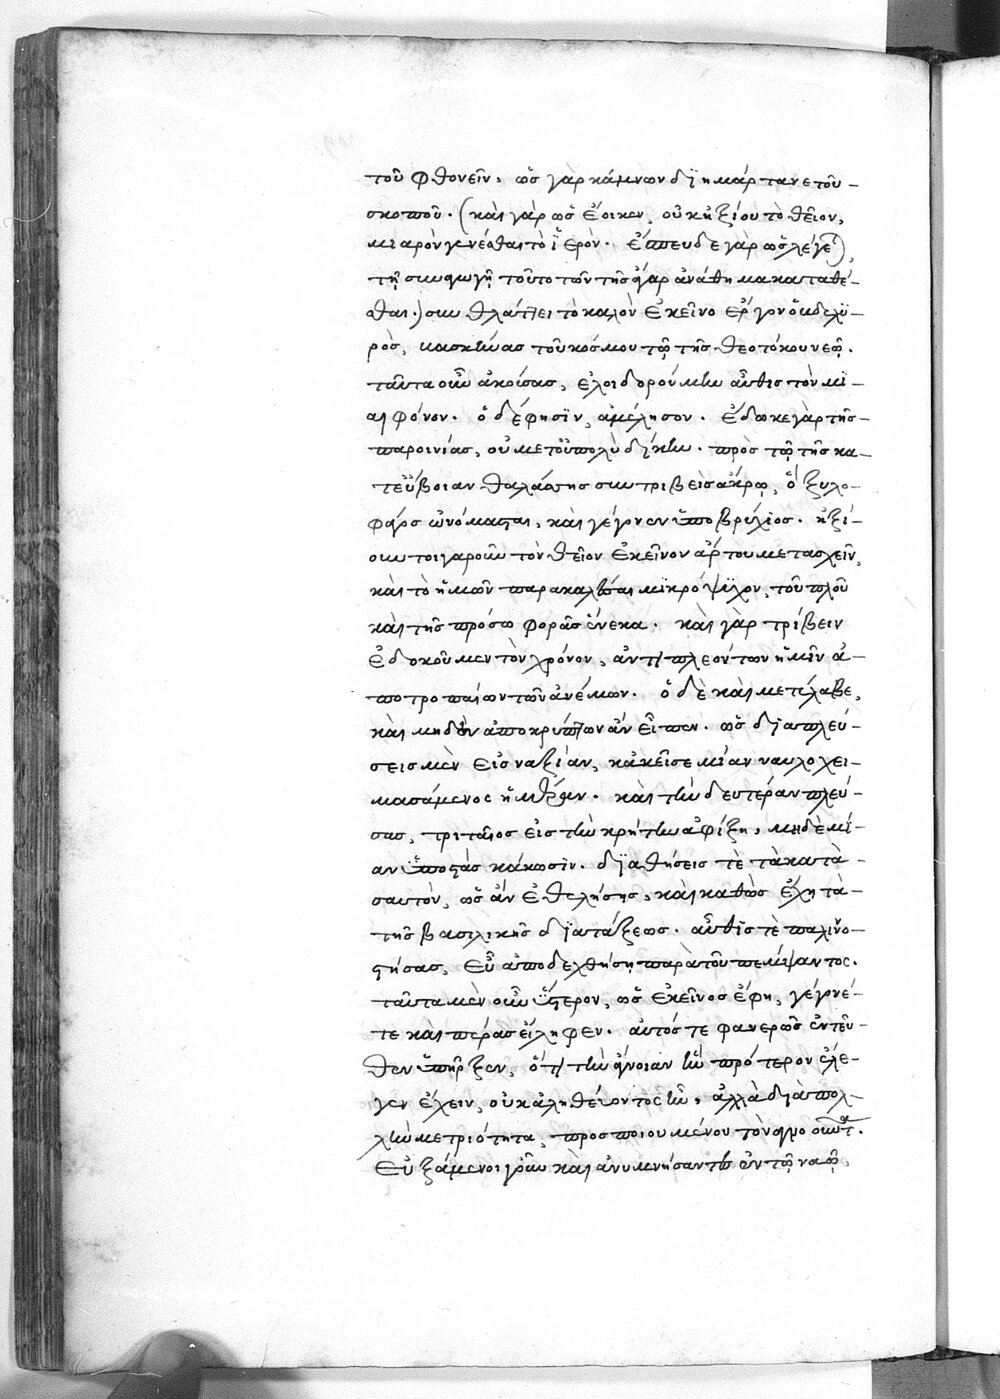 τοῦ φθονεῖν. ὡς γὰρ κάμνων διημάρτανε τοῦ
σκοποῦ. (καὶ γὰρ ὡς ἔοικεν, οὐκ ἠξίου τὸ θεῖον,
μιαρὸν γενέσθαι τὸ ἱερόν. ἔσπευδε γὰρ ὡς λέγει),
τῇ συναγωγῇ τοῦτο τῶν τῆς ἀνάθημα καταθέ-
σθαι.) συνθλάττει τὸ καλὸν ἐκεῖνο ἔργον ὁ ἀδελϋ
ρὸς, τοῦ κόσμου τῷ τῆς θεοτόκου νεῷ.
ταῦτα οὖν ἀκούσας, ἐλοιδορούμην αὖθις τὸν μι-
αιφόνον. ὁ δ' ἔφησϊν, ἀμέλησον. ἔδωκε γὰρ τῆς
παροινίας, οὐ μετοϋπολὺ δίκην. πρὸς τῷ τῆς κα-
τεύβοιαν θαλάσσης συντριβεὶς ἄκρῳ, ὃ ξυλο-
φάγος ὠνόμασται, καὶ γέγονεν ὑποβρύχιος. ἠξί-
ουν τοιγαροῦν τὸν θεῖον ἐκεῖνον ἄρτου μετασχεῖν,
καὶ τὸ ἡμῶν παρακαλέσαι μικρόψϋχον, τοῦ πλοῦ
καὶ τῆς πρόσω φορᾶς ἕνεκα. καὶ γὰρ τρίβειν
ἐδοκοῦμεν τὸν χρόνον, ἀντιπλεόντων ἡμῖν ἀ-
ποτροπαίων τῶν ἀνέμων. ὁ δὲ καὶ μετέλαβε,
καὶ μηδὲν ἀποκρύπτων ἀνεῖπεν. ὡς διαπλεύ-
σεις μὲν εἰς ναξίαν, κἀκεῖσε μίαν ναυλοχει-
μασάμενος ἡμέραν. καὶ τὴν δευτέραν πλεύ-
σας, τριταῖος εἰς τὴν κρήτην ἀφίξῃ, μηδὲ μί-
αν ὑποστὰς κάκωσϊν. διαθήσεις τὲ τὰ κατὰ
σαυτὸν, ὡς ἂν ἐθελήσῃς, καὶ καθὼς ἔχῃ τὰ
τῆς βασιλικῆς διατάξεως. αὖθϊς τὲ παλινο-
στήσας, εὖ ἀποδεχθήσῃ παρὰ τοῦ πέμψαντος.
ταῦτα μὲν οὖν ὕστερον, ὡς ἐκεῖνος ἔφη, γέγονέ
τε καὶ πέρας εἴληφεν. αὐτός τε φανερῶς ἐντεῦ-
θεν ὑπῆρξεν, ὅτι τὴν ἄνοιαν ἣν πρότερον ἔλε-
γεν ἔχειν, οὐκ ἀληθεύοντος ἦν, ἀλλὰ διὰ πολ-
λὴν μετριότητα, προσποιουμένου τὸν
εὐξάμενοι γοῦν καὶ ἀνυμνήσαντες ἐν τῷ ναῷ,